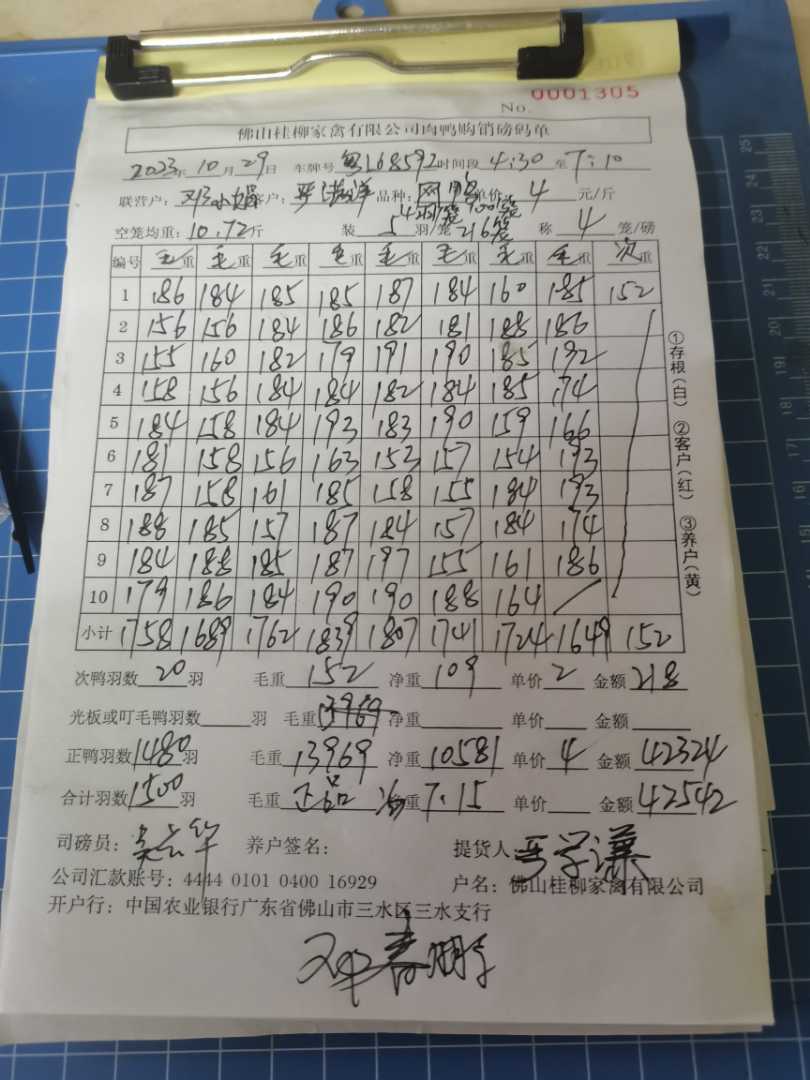 No. 0001305
佛山桂柳家禽有限公司肉鸭购销磅码单
2023年 10月 29日 车牌号 粤L68592 时间段 4:30 至 7:10
联营户: 邓小娟 客户: 品种: 网鸭 单价 4 元/斤
空笼均重: 10.72斤 装 5 羽/笼 216笼 称 4 笼/磅
编号 毛重 毛重 毛重 毛重 毛重 毛重 毛重 毛重 次重
1 186 184 185 185 187 184 160 185 152
2 156 156 184 186 182 181 188 186
3 155 160 182 179 191 190 185 192
4 158 156 184 184 182 184 185 174
5 184 158 184 193 183 190 159 166
6 181 158 156 163 153 157 154 193
7 187 158 161 185 158 155 184 193
8 188 185 157 187 184 157 184 174
9 184 188 185 187 197 155 161 186
10 179 186 184 190 190 188 164
小计 1758 1689 1762 1839 1807 1741 1724 1649 152
次鸭羽数 20 羽 毛重 152 净重 109 单价 2 金额 218
光板或叮毛鸭羽数 羽 毛重 13969 净重 单价 金额
正鸭羽数 1480 羽 毛重 13969 净重 10581 单价 4 金额 42324
合计羽数 1500 羽 毛重 正品 净重 7.15 单价 金额 42542
司磅员: 养户签名: 提货人 严学谦
公司汇款账号: 4444 0101 0400 16929 户名: 佛山桂柳家禽有限公司
开户行: 中国农业银行广东省佛山市三水区三水支行
①存根(白) ②客户(红) ③养户(黄)